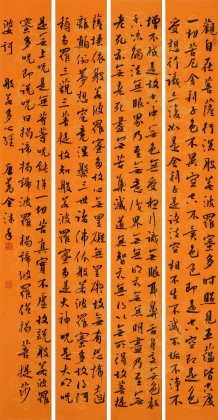 觀自在菩薩行深般若波羅蜜多時照見五蘊皆空度
一切苦厄舍利子色不異空空不異色色即是空空即是色
受想行識亦復如是舍利子是諸法空相不生不滅不垢不淨不
增不減是故空中無色無受想行識無眼耳鼻舌身意無色
聲香味觸法無眼界乃至無意識界無無明亦無無明盡乃至無
老死亦無老死盡無苦集滅道無智亦無得以無所得故菩提
薩埵依般若波羅蜜多故心無罣礙無罣礙故無有恐怖遠
離顛倒夢想究竟涅槃三世諸佛依般若波羅蜜多故得阿
耨多羅三藐三菩提故知般若波羅蜜多是大神咒是大明咒
是無上咒是無等等咒能除一切苦真實不虛故說般若波羅
蜜多咒即說咒曰揭諦揭諦波羅揭諦波羅僧揭諦菩提莎
婆訶 般若多心經